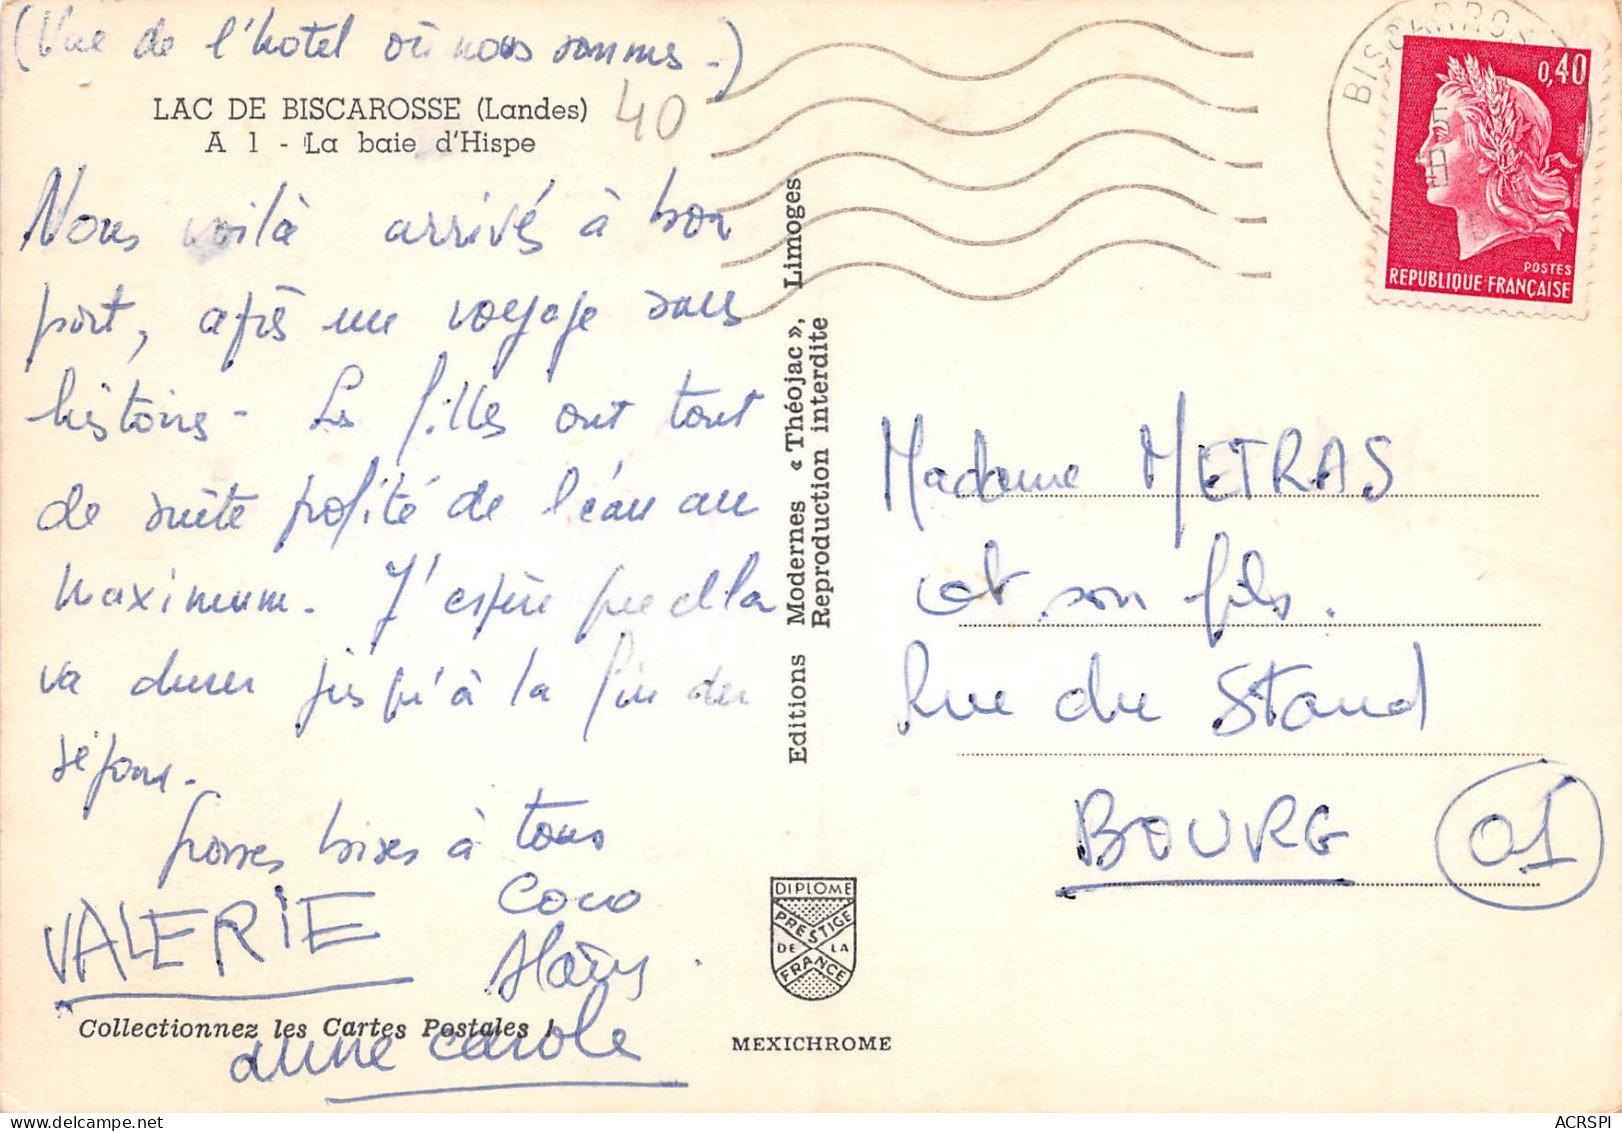 (Vue de l'hotel où nous sommes.)
LAC DE BISCAROSSE (Landes)
A 1 - La baie d'Hispe
40
Nous voilà arrivés à bon
port, après un voyage sans
histoires - Les filles ont tout
de suite profité de l'eau au
maximum. J'espère que cela
va durer jusqu'à la fin du
séjour.
Grosses bises à tous
VALERIE
Coco
Alain
anne carole
Collectionnez les Cartes Postales !
Editions Modernes « Théojac », Limoges
Reproduction interdite
DIPLOME
PRESTIGE
DE LA
FRANCE
MEXICHROME
BISCARROS
0,40
POSTES
REPUBLIQUE FRANÇAISE
Madame METRAS
et son fils.
Rue du Stand
BOURG 01
ACRSPI